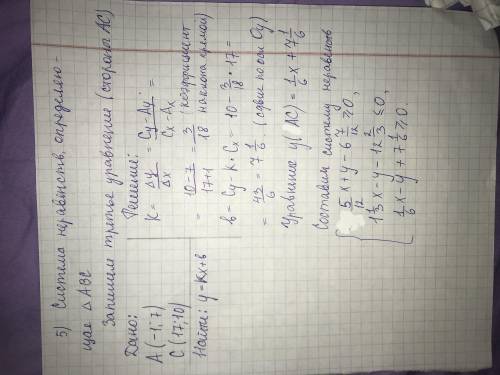 5) Система неравенств, определяю-
щае △ ABC
Запишем третье уравнение (стороны AC)
Дано:
A (-1; 7)
C (17; 10)
Найти: y = kx + b
Решение:
K = Δy/Δx = (Cy - Ay)/(Cx - Ax) =
= (10 - 7)/(17 + 1) = 3/18 (коэффициент наклона прямой)
b = Cy - K · Cx = 10 - 3/18 · 17 =
= 43/6 = 7 1/6 (сдвиг по оси Oy)
Уравнение y(AC) = 1/6 x + 7 1/6
Составим систему неравенств
5/12 x + y - 6 7/12 ≥ 0,
1 1/3 x - y - 12 2/3 ≤ 0,
1/6 x - y + 7 1/6 ≥ 0.